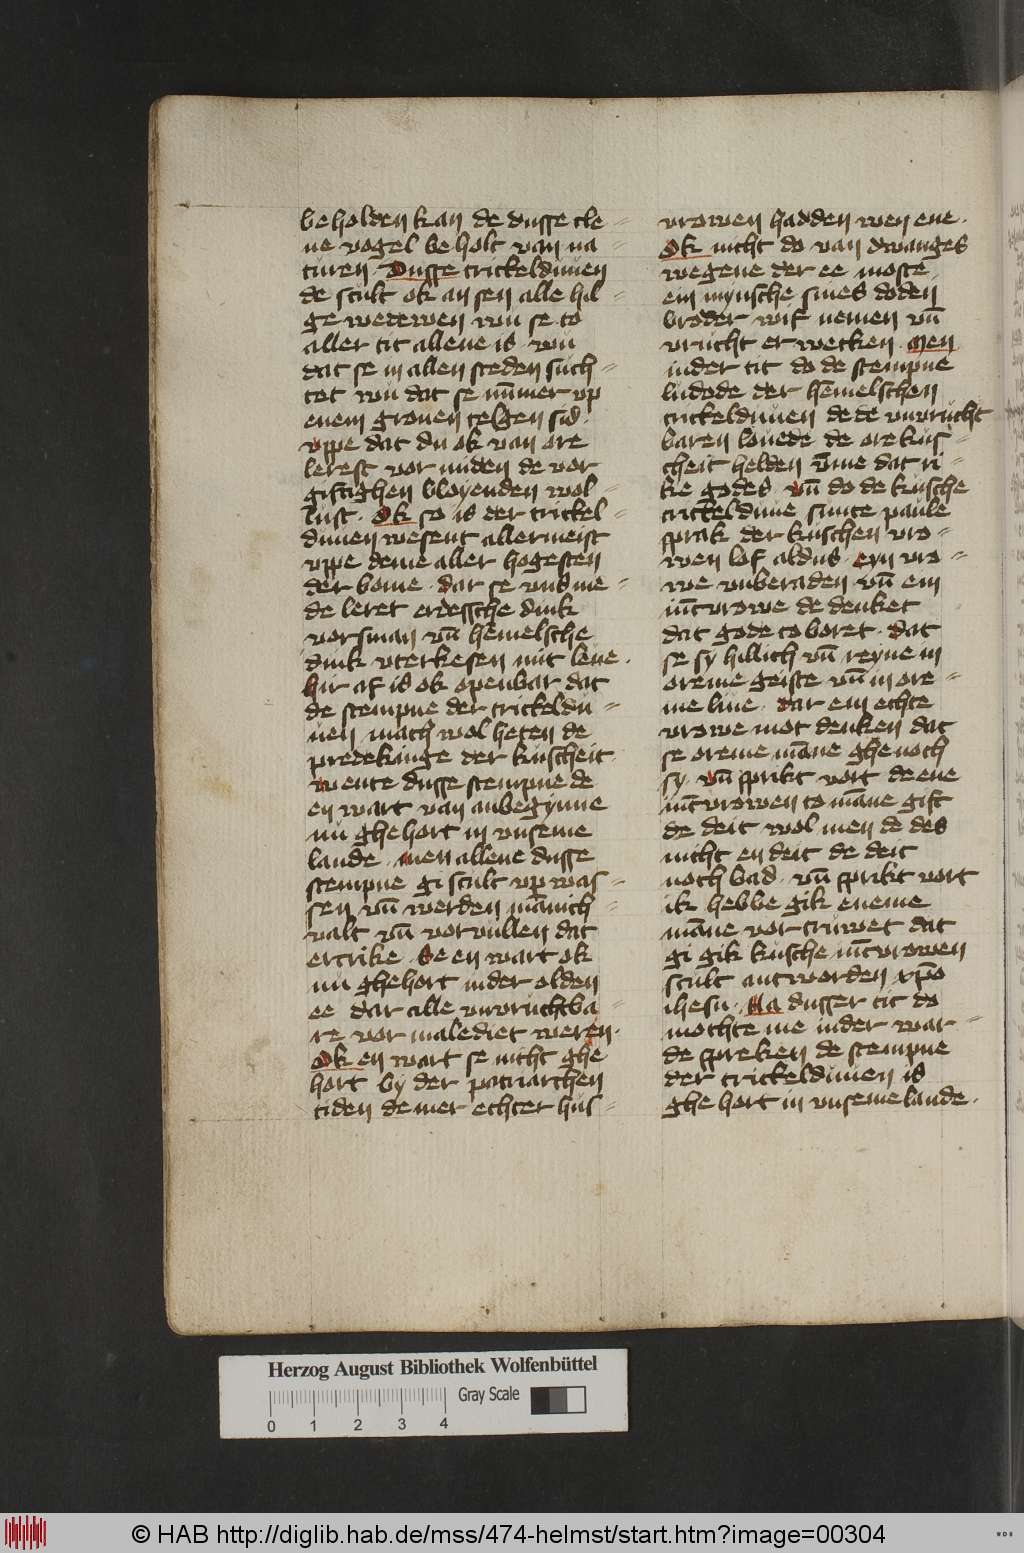 beholden kan de dusse cle=
ne vogel beholt van na=
turen · Dusse trickelduuen
de scult ok an sen alle hil=
ge wedewen wu se to
aller tit allene is · wu
dat se in allen steden such=
tet wu dat se nūmer vp
enem gronen telgen sid ·
vppe dat du ok van ore
lerest vor miden de vor
giftighen bloyenden wol=
lust · Ok so is der trickel=
duuen wesent allermeist
vppe deme aller hogesten
der bome · dar se vns me=
de leret erdessche dink
vorsman vn̄ hēmelsche
dink vterkesen mit leue ·
hir af is ok openbar dat
de stempne der trickeldu=
uen mach wol heten de
predekinge der kuscheit
wente dusse stempne de
en wart van anbegynne
nů ghehort in vnseme
lande · men allene dusse
stempne gi scult vp was=
sen vn̄ werden mānich=
valt vn̄ vorvullen dat
ertrike · Se en wart ok
nu ghehort in der olden
ee dar alle vnvruchtba=
re vor malediet weren ·
Ok en wart se nicht ghe
hort by der patriarchen
tiden de mer echter hus=
vrowen hadden wen ene ·
Ok nicht do van dwanges
wegene der ee moste
ein mynsche sines doden
broder wif nemen vn̄
vrucht er wecken · Men
in der tit do de stempne
ludode der hēmelschen
trickelduuen de de vnvrucht
baren louede de ore kus=
cheit helden v̄me dat ri=
ke godes · vn̄ do de kusche
trickelduue sunte paule
sprak der kuschen vro=
wen lof aldus · eyn vro=
we vnberaden vn̄ ein
iūcvrowe de denket
dat gode to boret · dat
se sy hillich vn̄ reyne in
oreme geiste vn̄ in ore=
me liue · dar ein echte
vrowe mot denken dat
se oreme māne ghenoch
sy · vn̄ sprikt vort de ene
iūcvrowen to māne gift
de deit wol men de des
nicht en deit de deit
noch bad · vn̄ sprikt vort
ik hebbe gik eneme
māne vor truwet dat
gi gik kusche iūcvrowen
scult antworden xp̄o
ihesu · Na dusser tit do
mochte me in der war=
de spreken de stempne
der trickelduuen is
ghe hort in vnseme lande ·
Herzog August Bibliothek Wolfenbüttel
Gray Scale
0 1 2 3 4
© HAB http://diglib.hab.de/mss/474-helmst/start.htm?image=00304